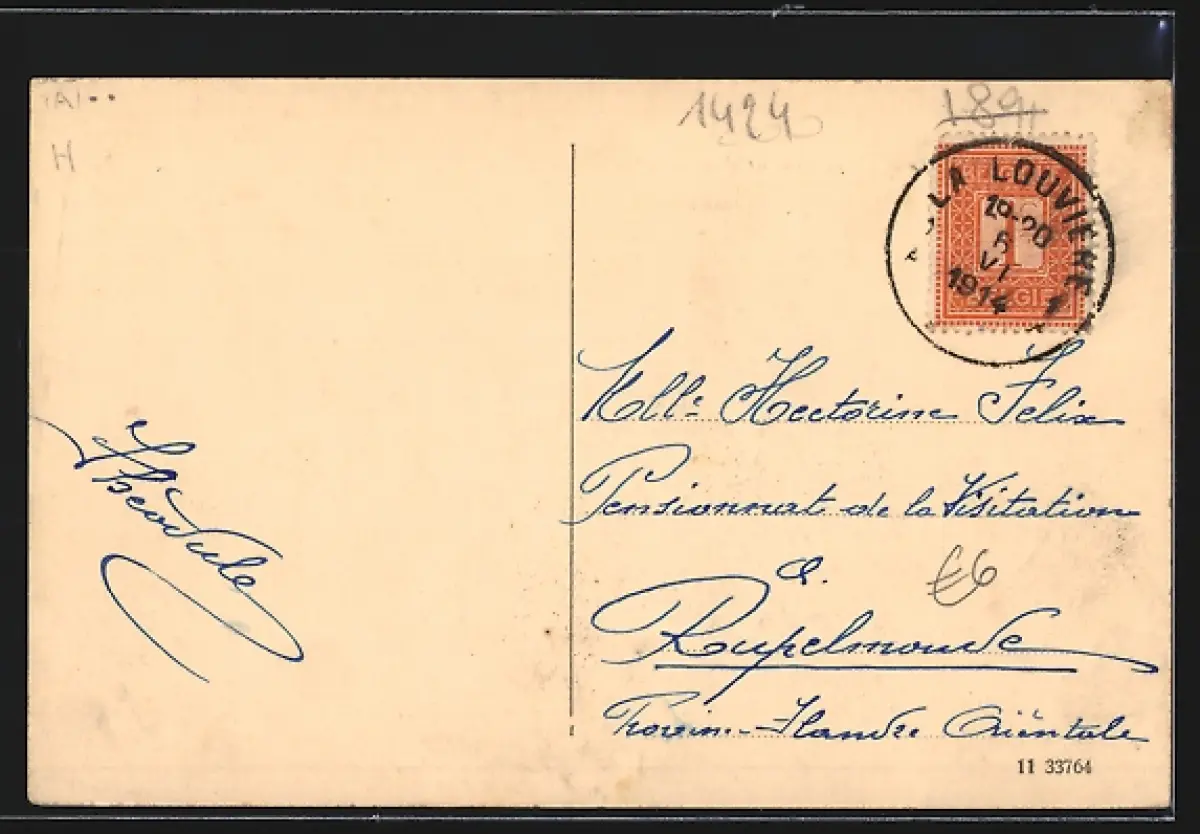 H
1424
189
LA LOUVIERE 1
19-20
6
VI
1914
1
Théodule
Mlle Hectorine Felix
Pensionnat de la Visitation
à.
Rupelmonde
Provin. Flandre Oriëntale
€6
11 33764